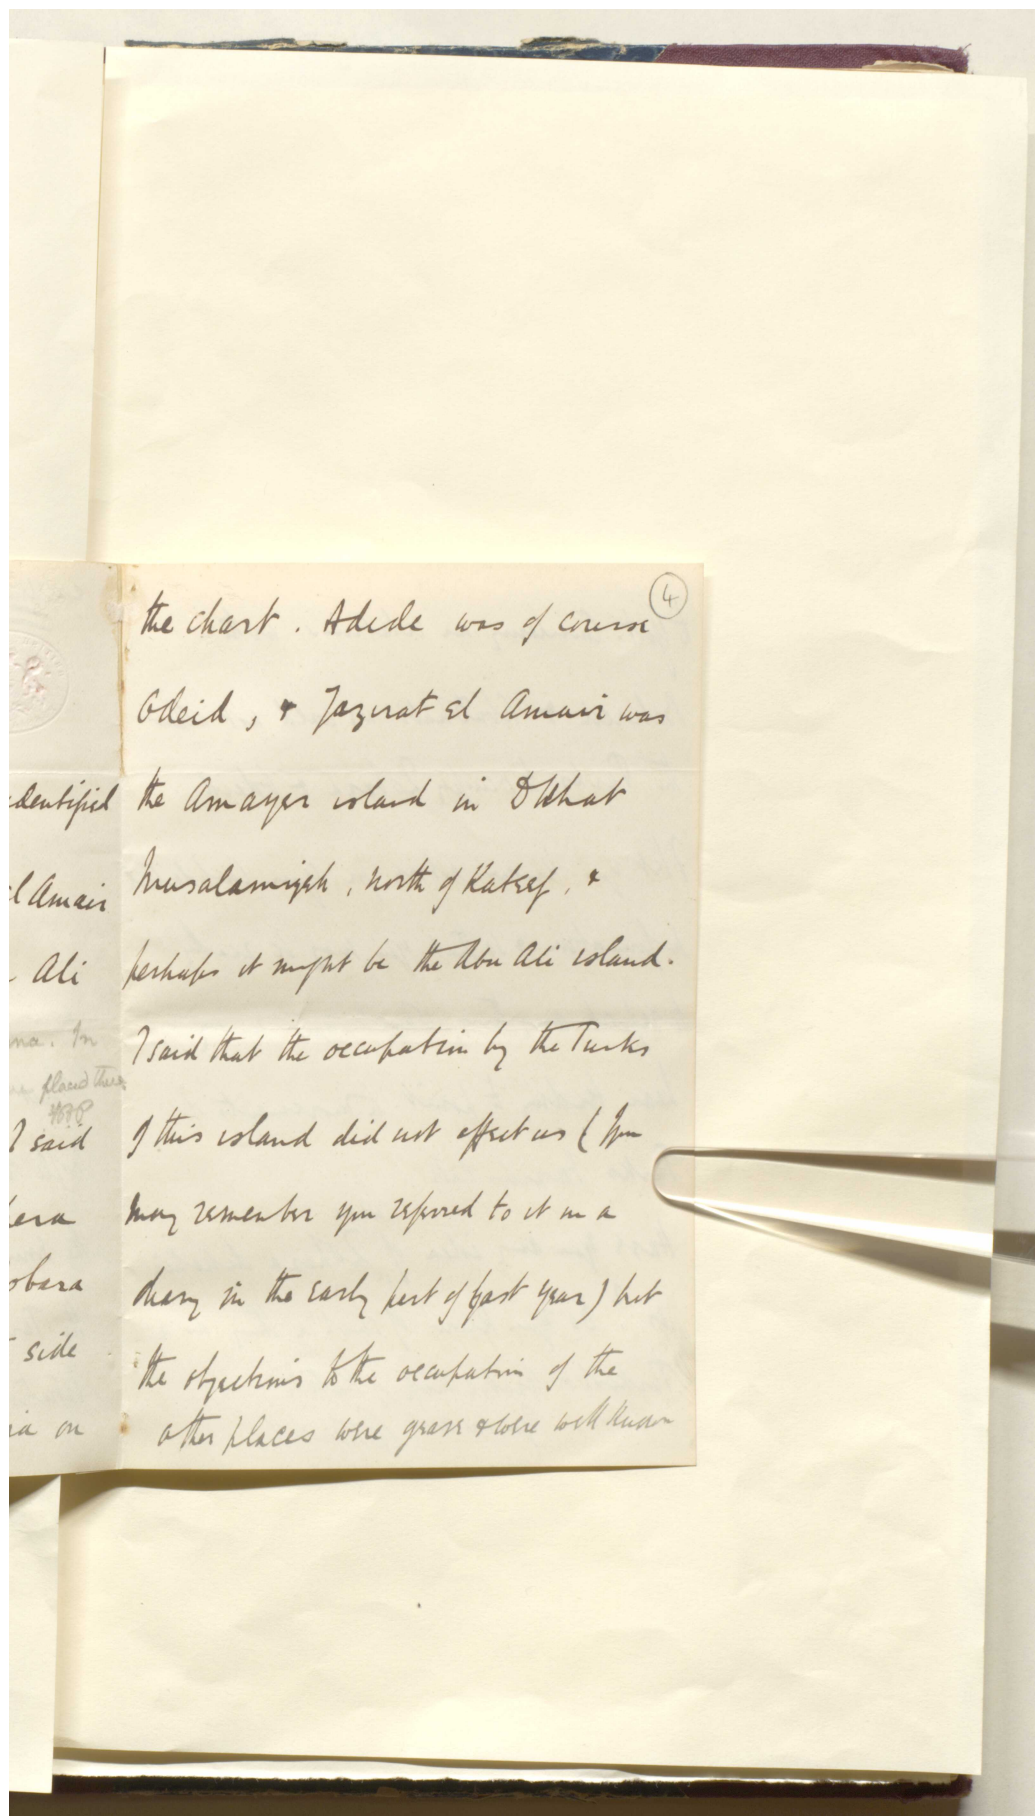 4
the chart. Adede was of course
Odeid, & Jazirat El Amair was
the Amayer island in Dkhat
Musalamiyeh, north of Kateef, &
perhaps it might be the Abu Ali island.
I said that the occupation by the Turks
of this island did not affect us (You
may remember you referred to it in a
diary in the early part of past year) but
the objections to the occupation of the
other places were grave & were well known
dentified
l Amair
Ali
na. In
placed there
I said
era
obara
side
ia on